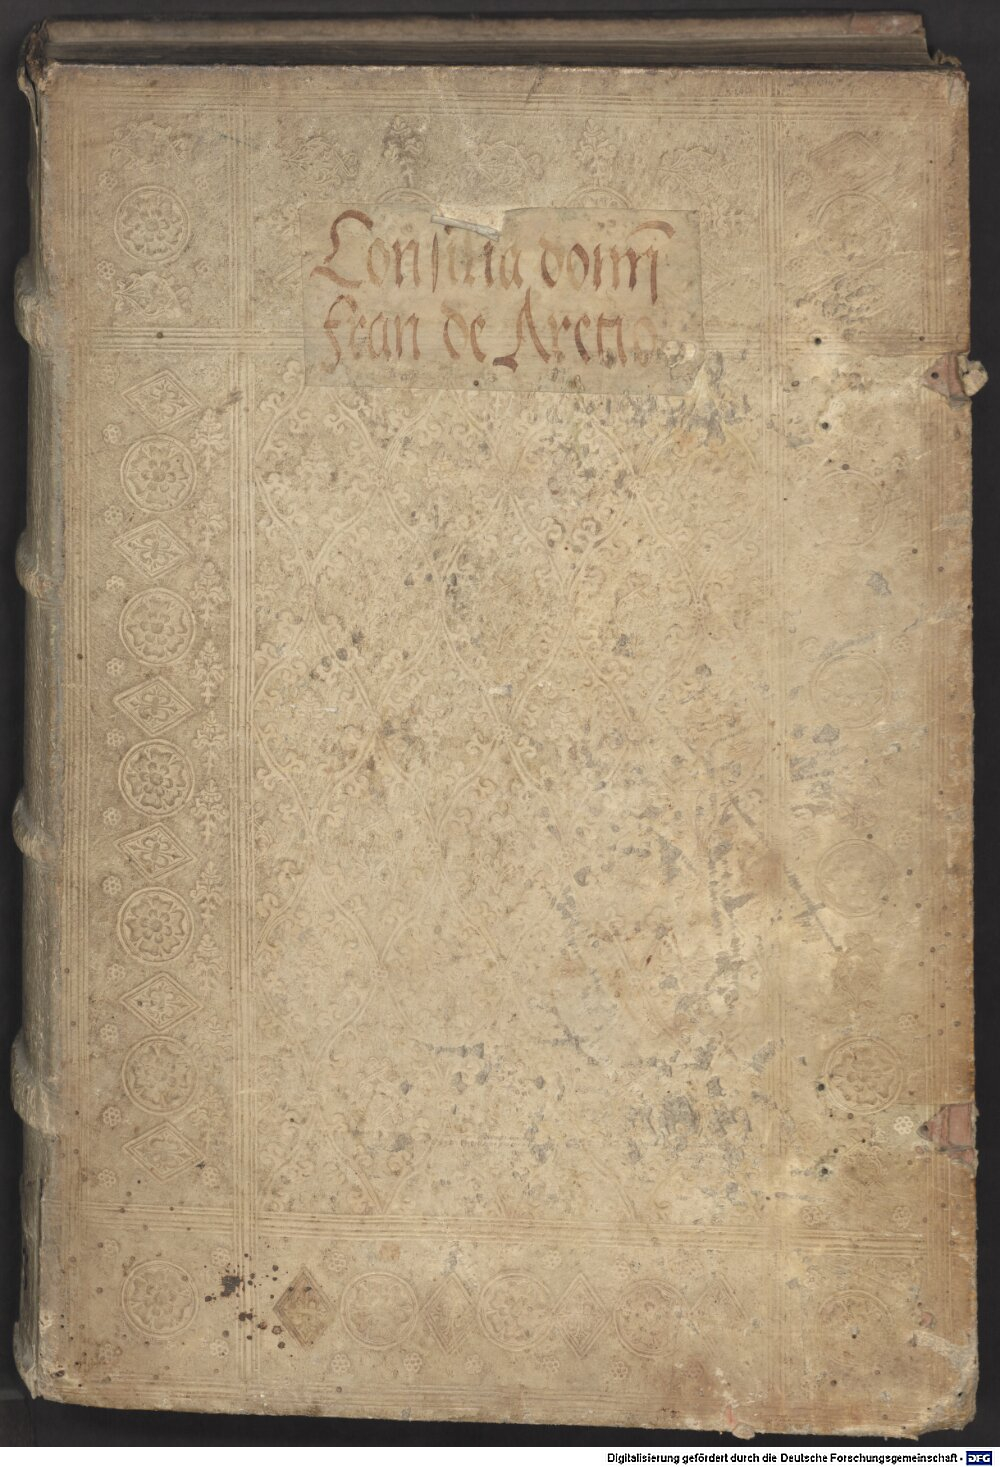 Consilia domī
Fran de Aretio
Digitalisierung gefördert durch die Deutsche Forschungsgemeinschaft - DFG